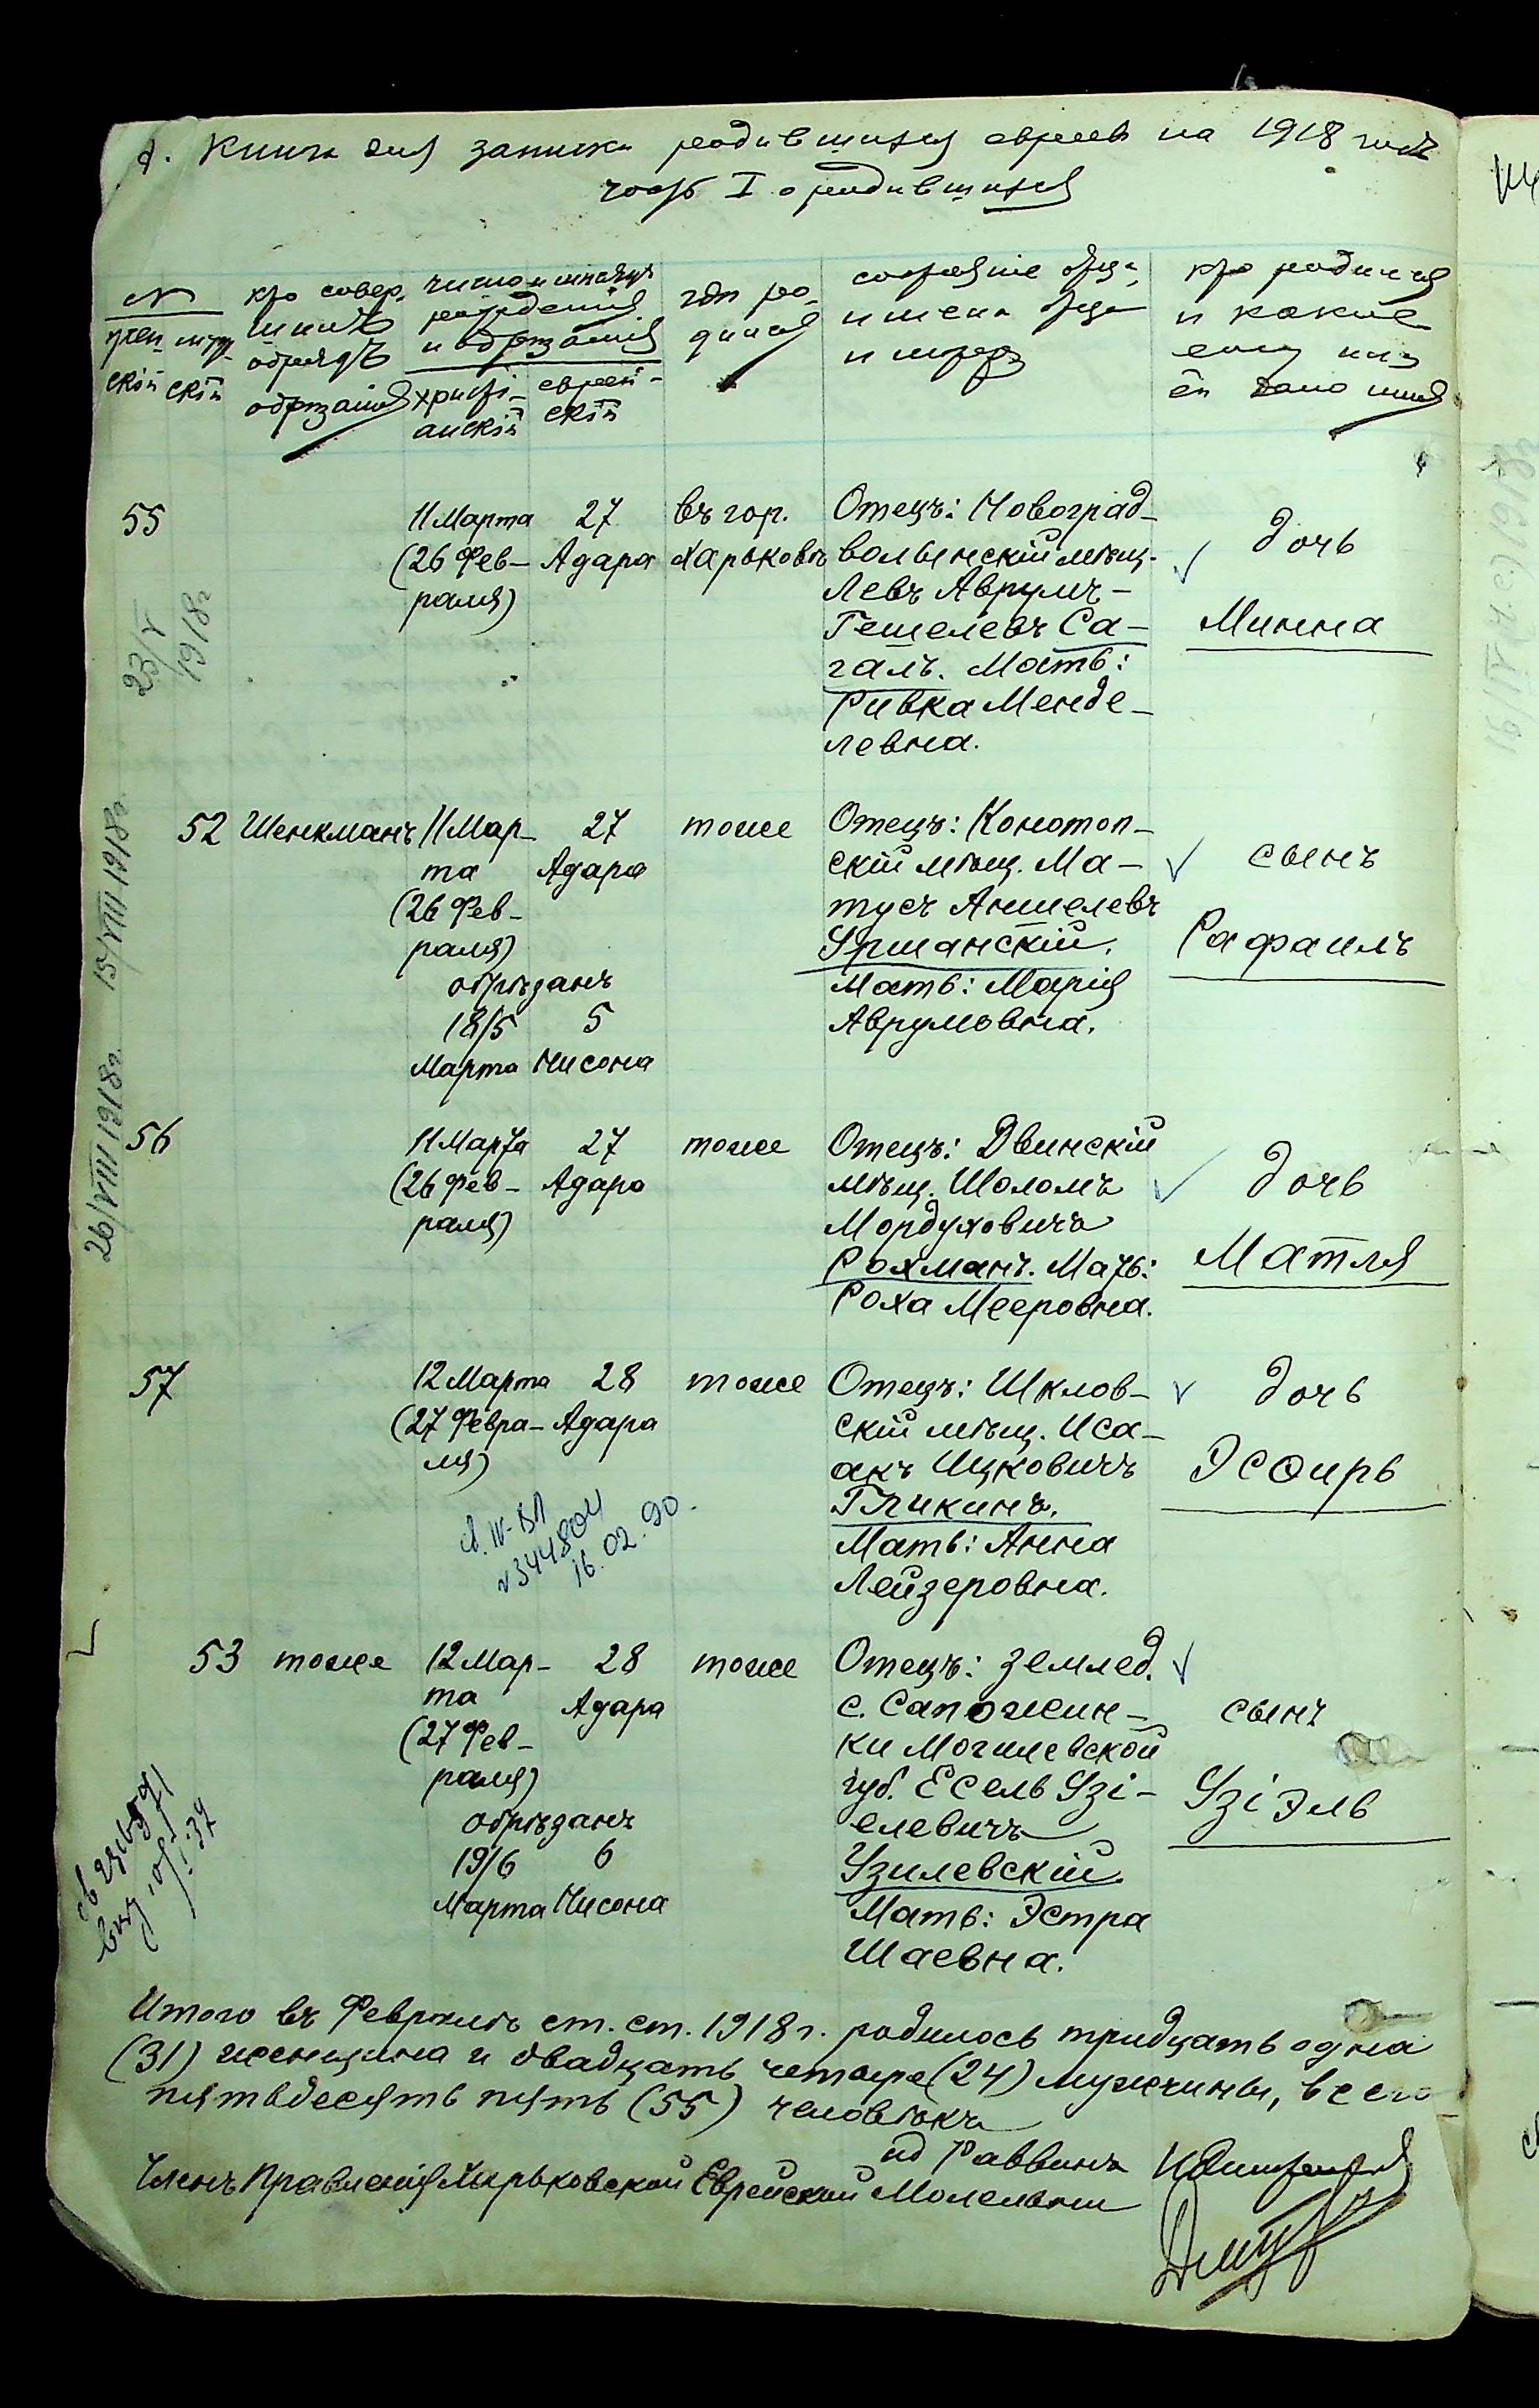 Книга для записки родившихся евреевъ на 1918 годъ
часть I о родившихся
№
женскій
мужскій
кто совершилъ
обрядъ
обрѣзанія
число и мѣсяцъ
рожденія
и обрѣзанія
христіанскій
еврейскій
гдѣ родился
состояніе отца,
имена отца
и матери
кто родился
и какое
ему или
ей дано имя
55
11 Марта
(26 Фев-
раля)
27
Адара
въ гор.
Харьковѣ
Отецъ: Новоград-
волынскій мѣщ.
Левъ Аврумъ-
Гешелевъ Са-
галъ. Мать:
Ривка Менде-
левна.
дочь
Минна
23/V
1918 г
52
Шенкманъ
11 Мар-
та
(26 Фев-
раля)
обрѣзанъ
18/5
Марта
27
Адара
5
Нисона
тоже
Отецъ: Конотоп-
скій мѣщ. Ма-
тусъ Аншелевъ
Уршанскій.
Мать: Марія
Аврумовна.
сынъ
Рафаилъ
15/VIII 1918 г.
56
11 Марта
(26 Фев-
раля)
27
Адара
тоже
Отецъ: Двинскій
мѣщ. Шоломъ
Мордуховичъ
Рохманъ. Мать:
Роха Мееровна.
дочь
Матля
26/VIII 1918 г.
57
12 Марта
(27 Февра-
ля)
28
Адара
тоже
Отецъ: Шклов-
скій мѣщ. Иса-
акъ Ицковичъ
Гликинъ.
Мать: Анна
Лейзеровна.
дочь
Эсѳирь
№ 344804
16.02.90.
53
тоже
12 Мар-
та
(27 Фев-
раля)
обрѣзанъ
19/6
Марта
28
Адара
6
Нисона
тоже
Отецъ: землед.
с. Сапожин-
ки Могилевской
губ. Есель Узі-
елевичъ
Узилевскій.
Мать: Эстра
Шаевна.
сынъ
Узіэль
Итого въ Февралѣ ст. ст. 1918 г. родилось тридцать одна
(31) женщина и двадцать четыре (24) мужчины, всего
пятьдесятъ пять (55) человѣкъ
ид Раввина
Членъ Правленія Харьковской Еврейской Молельни